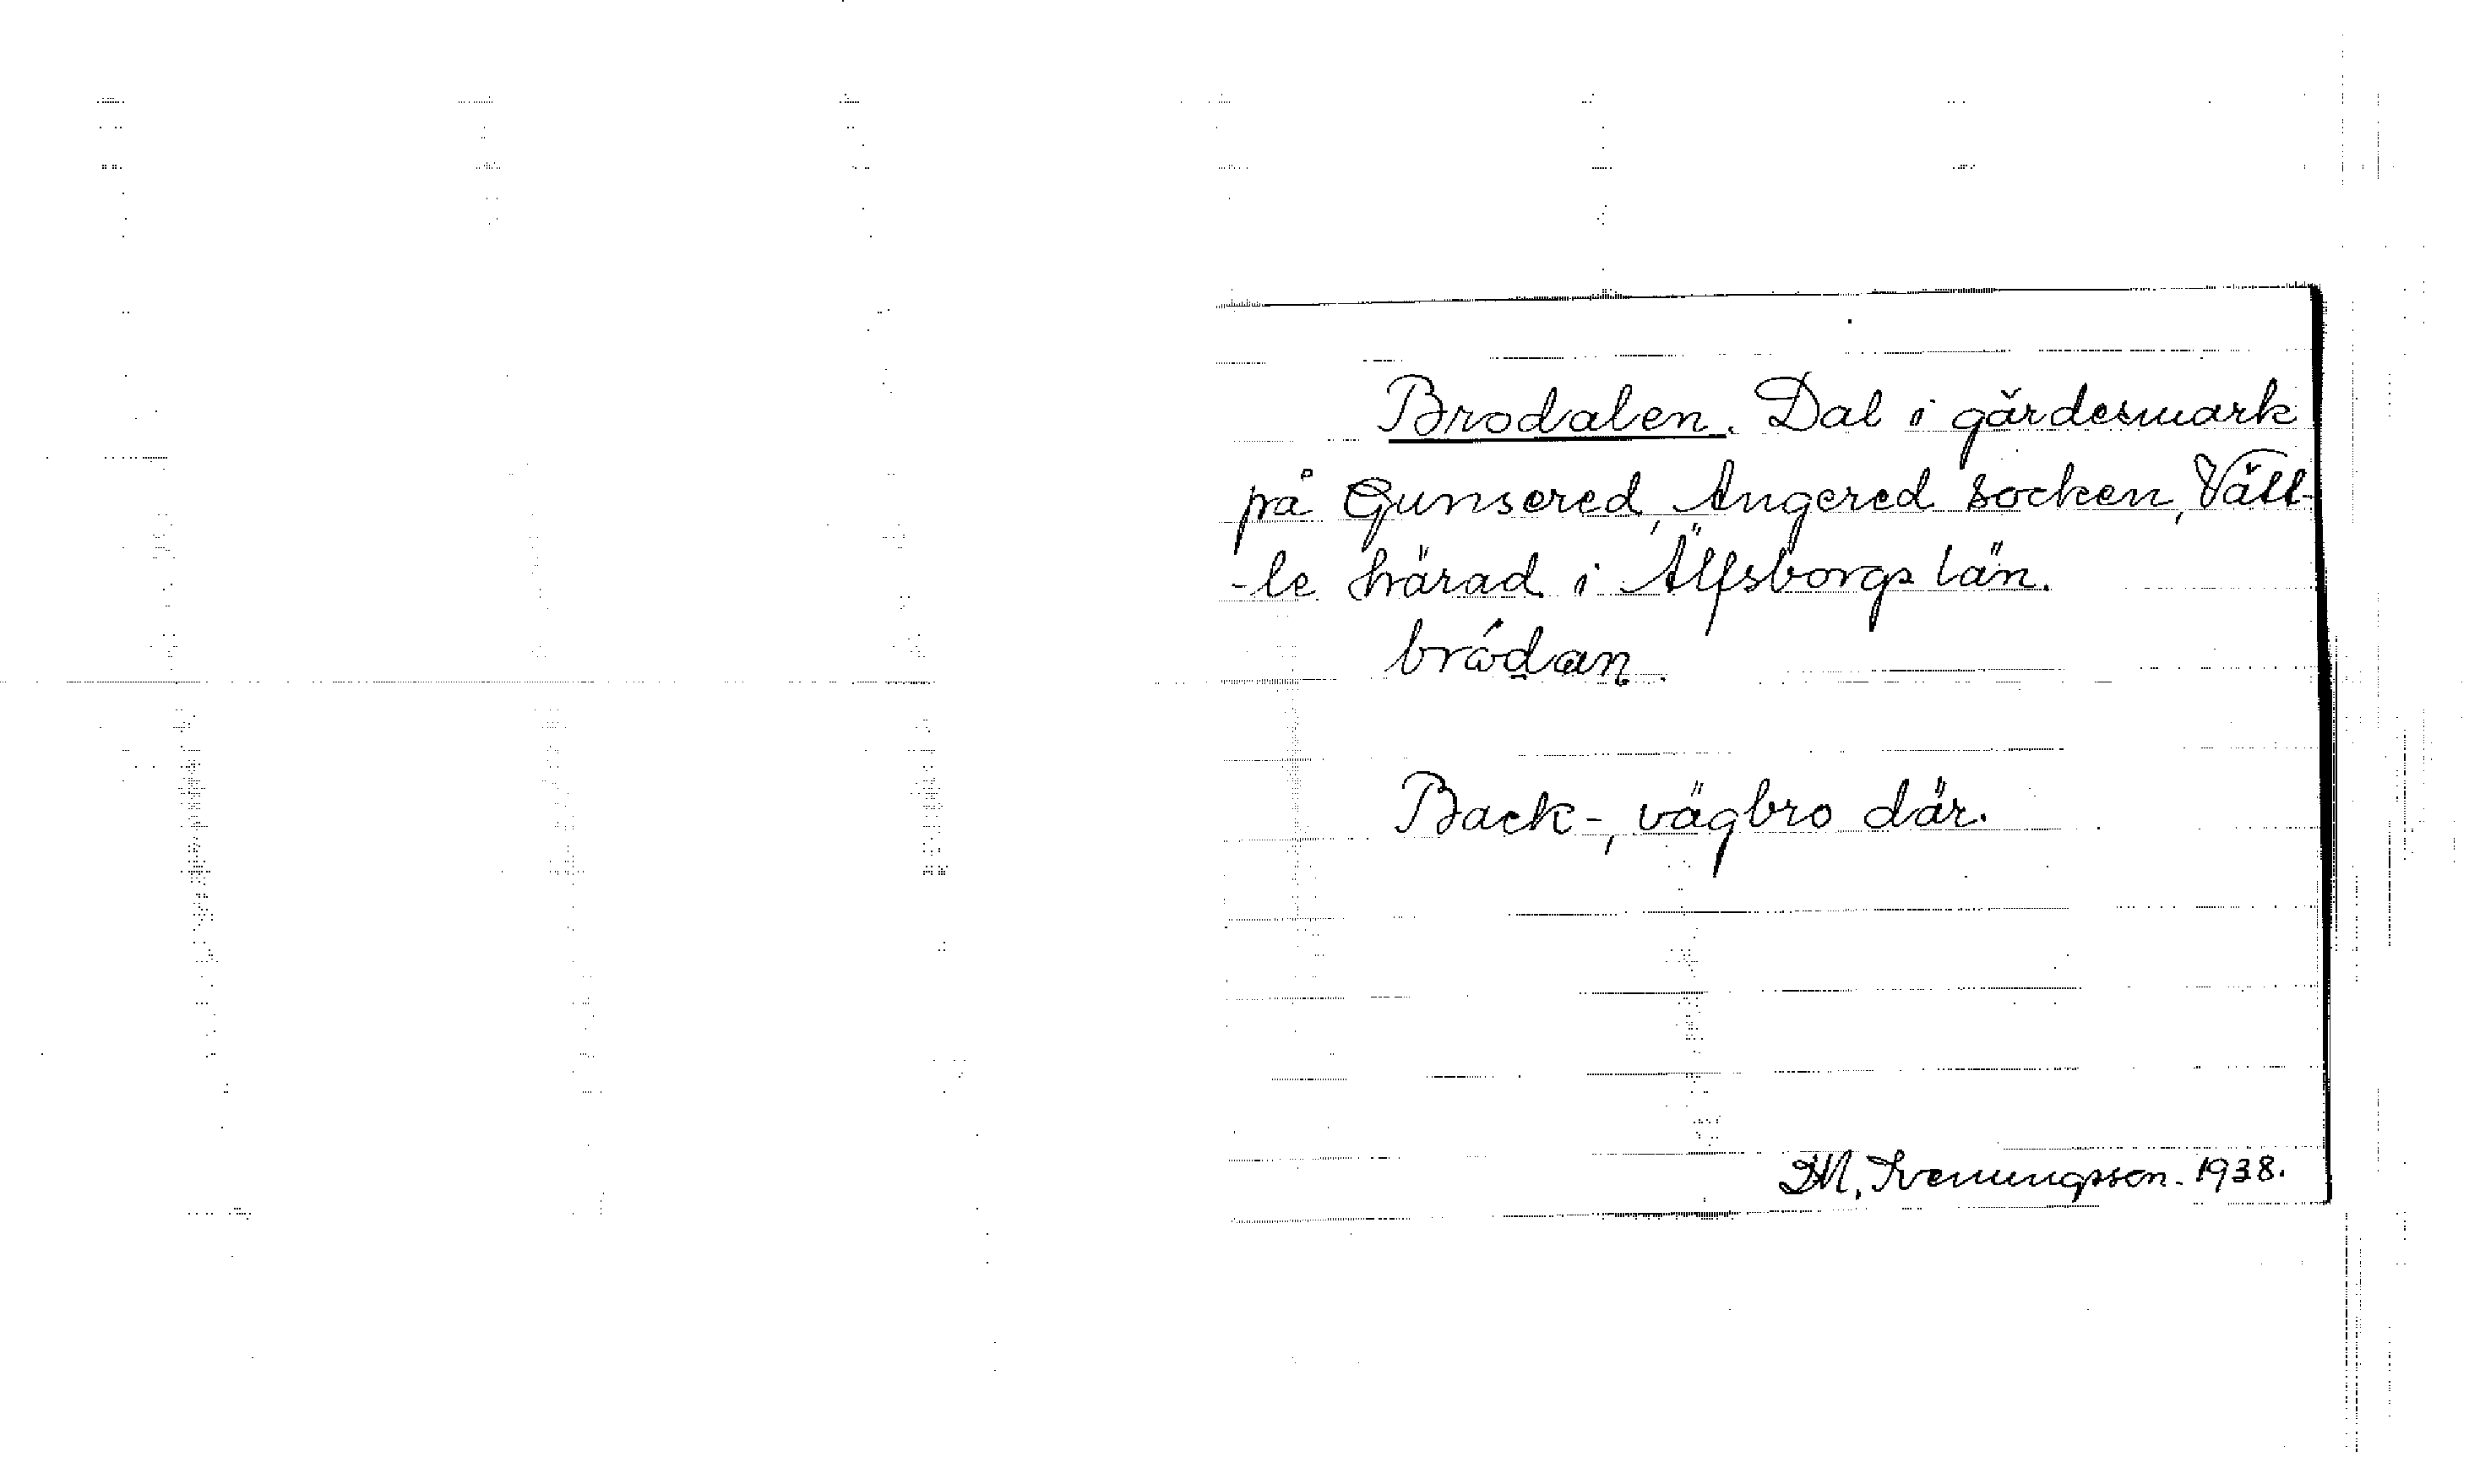 Brodalen. Dal i gärdesmark
på Gunsered, Angered socken, Vätt-
-le härad i Älfsborgs län.
bródan.
Back-, vägbro där.
1938.